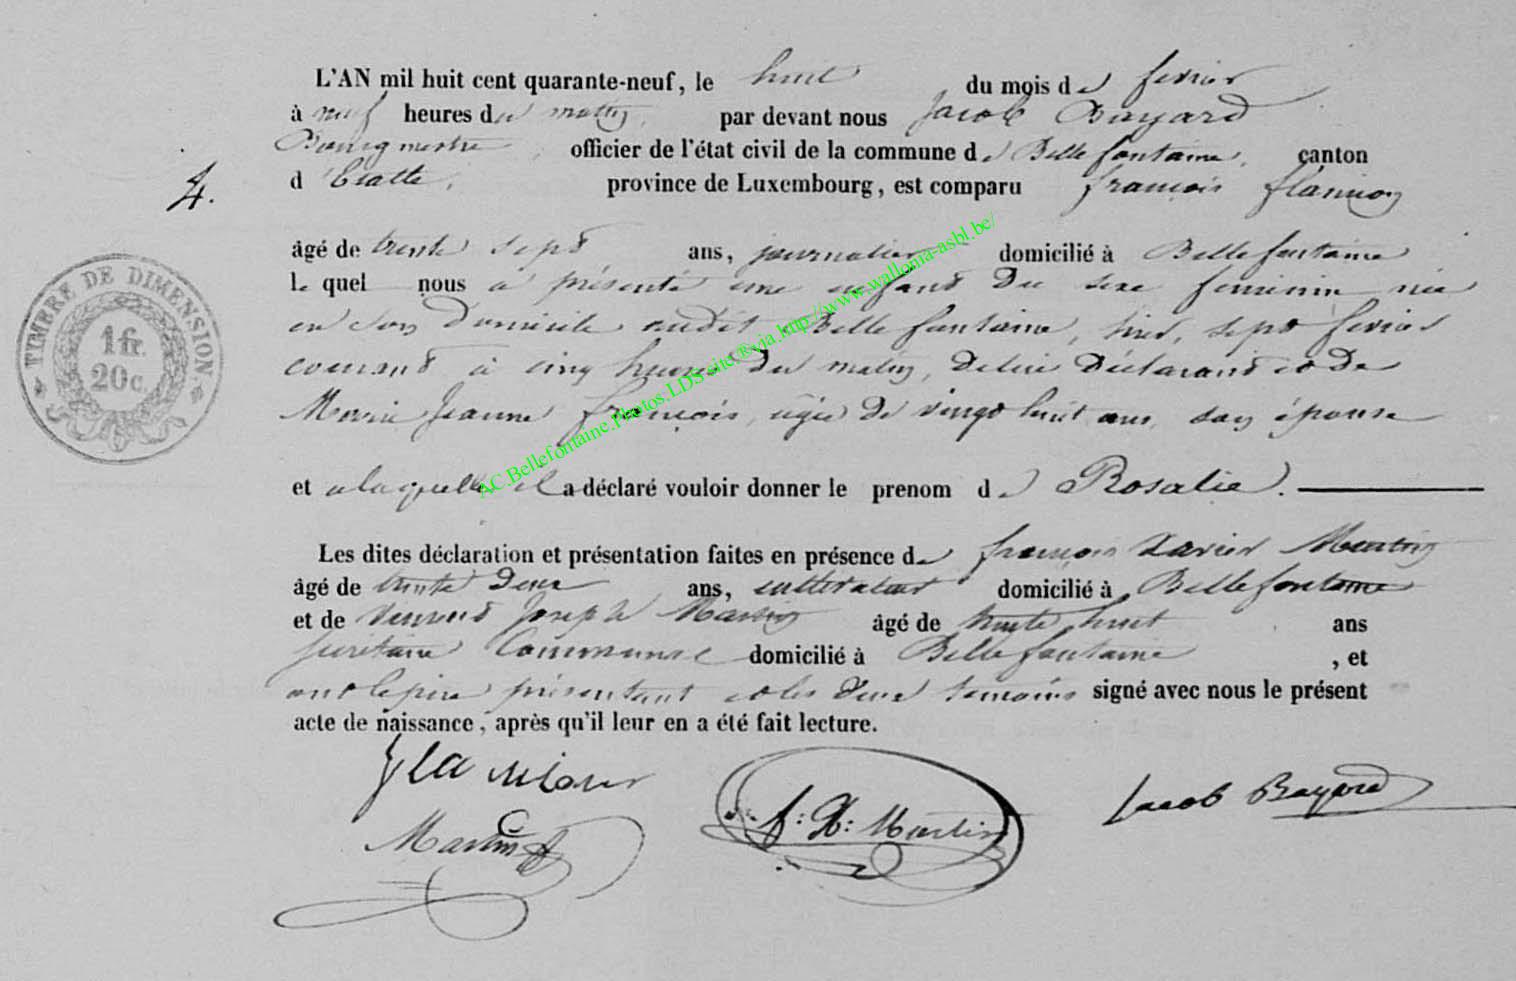 L'AN mil huit cent quarante-neuf, le huit du mois de fevrier
à neuf heures du matin, par devant nous Jacob Bayard
Bourgmestre, officier de l'état civil de la commune de Bellefontaine, canton
d'Etalle, province de Luxembourg, est comparu françois flamion
4.
âgé de trente sept ans, journalier domicilié à Bellefontaine
le quel nous a présenté une enfant du sexe feminin née
en son domicile audit Bellefontaine, hier, sept fevrier
courant à cinq heures du matin, de lui déclarant et de
Marie Jeanne françois, agée de vingt huit ans, son épouse
et a laquelle il a déclaré vouloir donner le prenom de Rosalie.
Les dites déclaration et présentation faites en présence de françois Xavier Martin
âgé de trente deux ans, cultivateur domicilié à Bellefontaine
et de Joseph Martin âgé de trente huit ans
secrétaire Communal domicilié à Bellefontaine, et
ont le père présentant et les deux temoins signé avec nous le présent
acte de naissance, après qu'il leur en a été fait lecture.
flamion
Martin
f: X: Martin
Jacob Bayard
TIMBRE DE DIMENSION.
1 fr.
20 c.
AC.Bellefontaine.photos.LDS site.®via.http://www.wallonia-asbl.be/